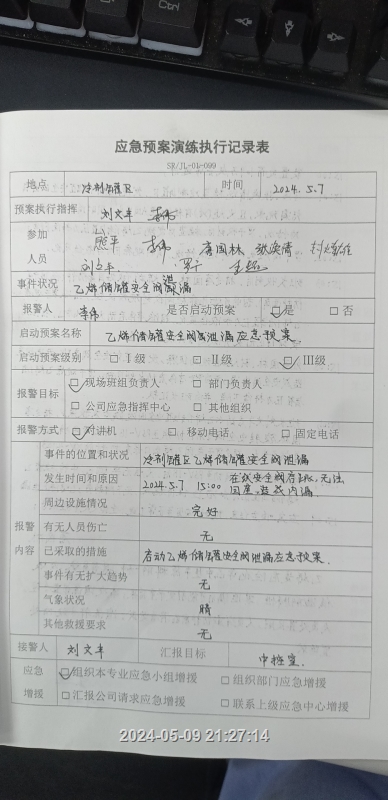 Ctrl
应急预案演练执行记录表
SR/JL-01-099
地点 冷剂罐区 时间 2024.5.7
预案执行指挥 刘文丰 李伟
参加人员 熊平 李伟 唐国林
刘文丰 罗干 王超
事件状况 乙烯储罐安全阀泄漏
报警人 李伟 是否启动预案 ☑是 □否
启动预案名称 乙烯储罐安全阀泄漏应急预案
启动预案级别 □Ⅰ级 □Ⅱ级 ☑Ⅲ级
报警目标 ☑现场班组负责人 □部门负责人
□公司应急指挥中心 □其他组织
报警方式 ☑对讲机 □移动电话 □固定电话
报警内容
事件的位置和状况 冷剂罐区乙烯储罐安全阀泄漏
发生时间和原因 2024.5.7 15:00 在线安全阀存, 无法
回座, 造成内漏
周边设施情况 完好
有无人员伤亡 无
已采取的措施 启动乙烯储罐安全阀泄漏应急预案.
事件有无扩大趋势 无
气象状况 晴
其他救援要求 无
接警人 刘文丰 汇报目标 中控室.
应急增援 ☑组织本专业应急小组增援 □组织部门应急增援
□汇报公司请求应急增援 □联系上级应急中心增援
2024-05-09 21:27:14